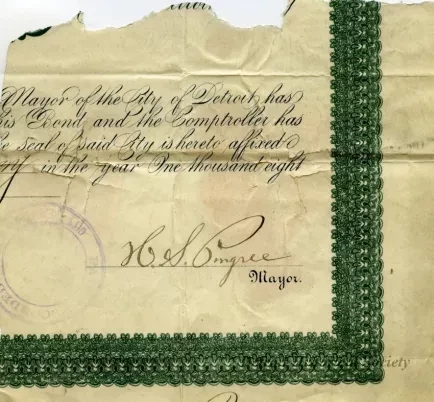 Mayor of the City of Detroit has
his Bond, and the Comptroller has
e seal of said City is hereto affixed
in the year One thousand eight
H. S. Pingree
Mayor.
Society